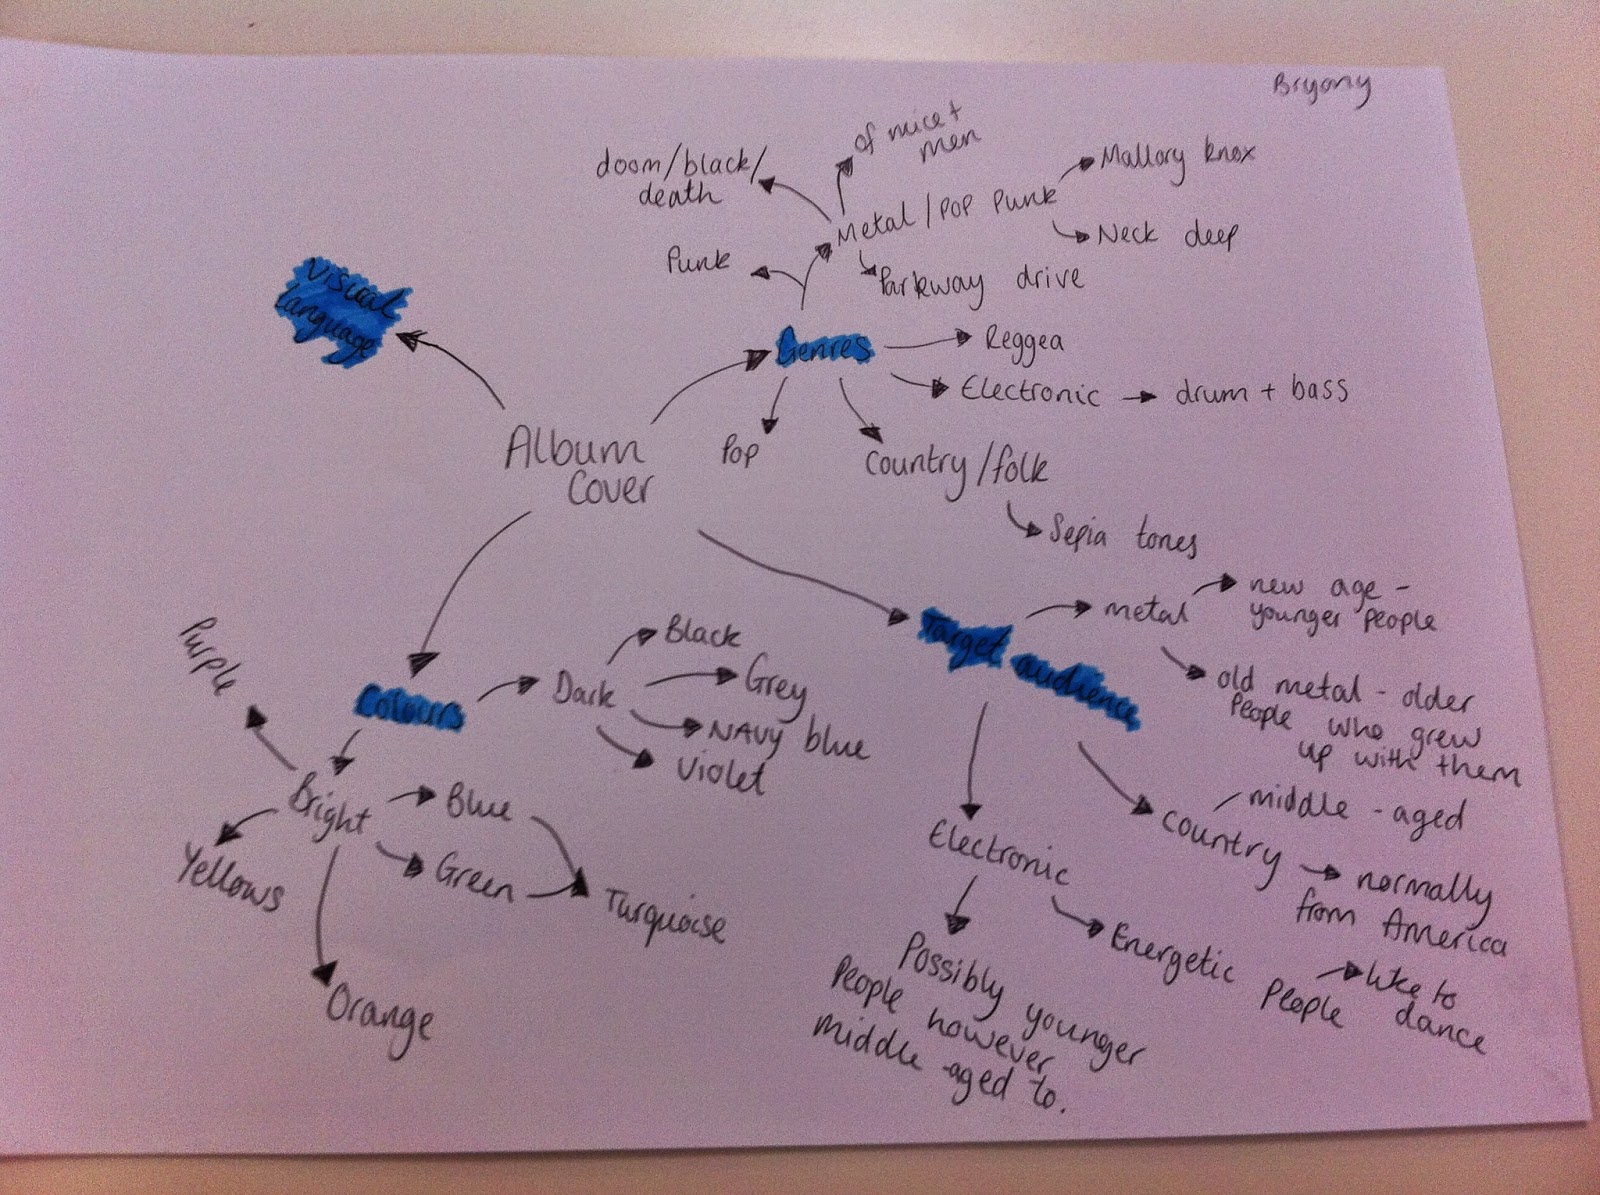 Bryony
of mice +
men
doom/black/
death
Mallory knox
Metal/Pop Punk
Neck deep
Punk
Parkway drive
Visual
Language
Genres
Reggea
Electronic
drum + bass
Album
Cover
Pop
Country/folk
Sepia tones
Target audience
metal
new age -
younger people
old metal - older
People who grew
up with them
Country
middle - aged
normally
from America
Electronic
Energetic People
like to
dance
Possibly younger
People however
middle -aged to.
Colours
Dark
Black
Grey
NAVY blue
Violet
Purple
Bright
Blue
Green
Turquoise
Yellows
Orange